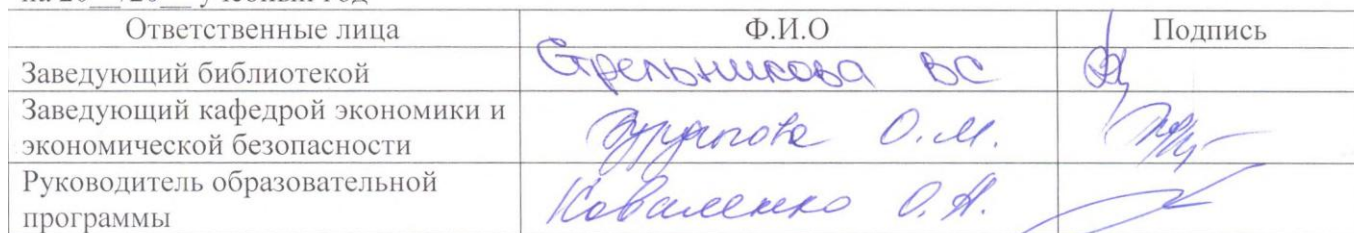 на 20__/20__ учебный год
Ответственные лица Ф.И.О Подпись
Заведующий библиотекой Стрельникова ВС
Заведующий кафедрой экономики и
экономической безопасности О.М.
Руководитель образовательной
программы Коваленко О.А.